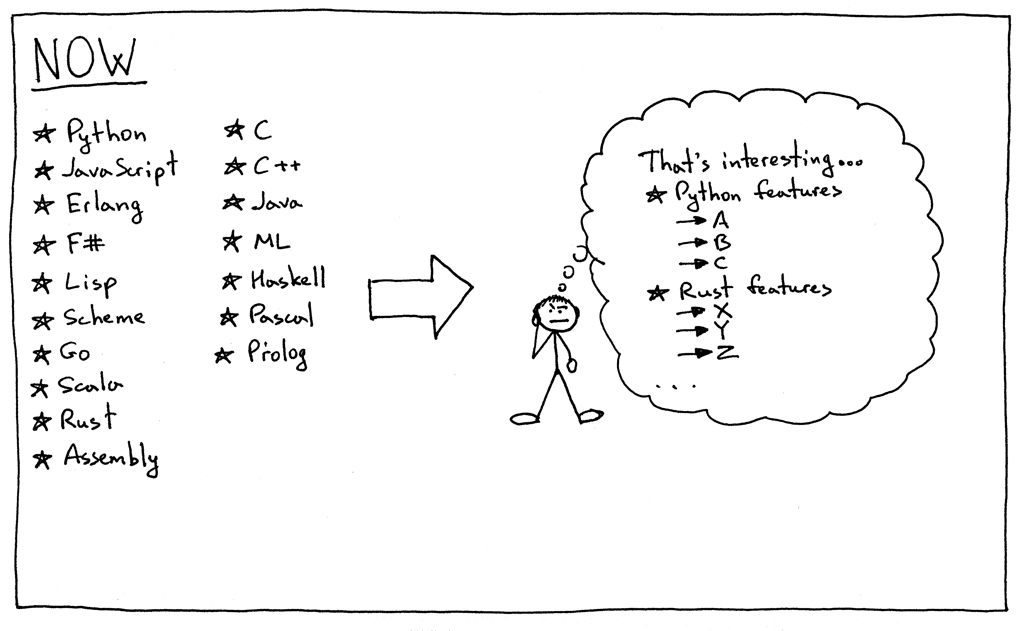 NOW
★ Python
★ JavaScript
★ Erlang
★ F#
★ Lisp
★ Scheme
★ Go
★ Scala
★ Rust
★ Assembly
★ C
★ C++
★ Java
★ ML
★ Haskell
★ Pascal
★ Prolog
That's interesting...
★ Python features
→ A
→ B
→ C
★ Rust features
→ X
→ Y
→ Z
...